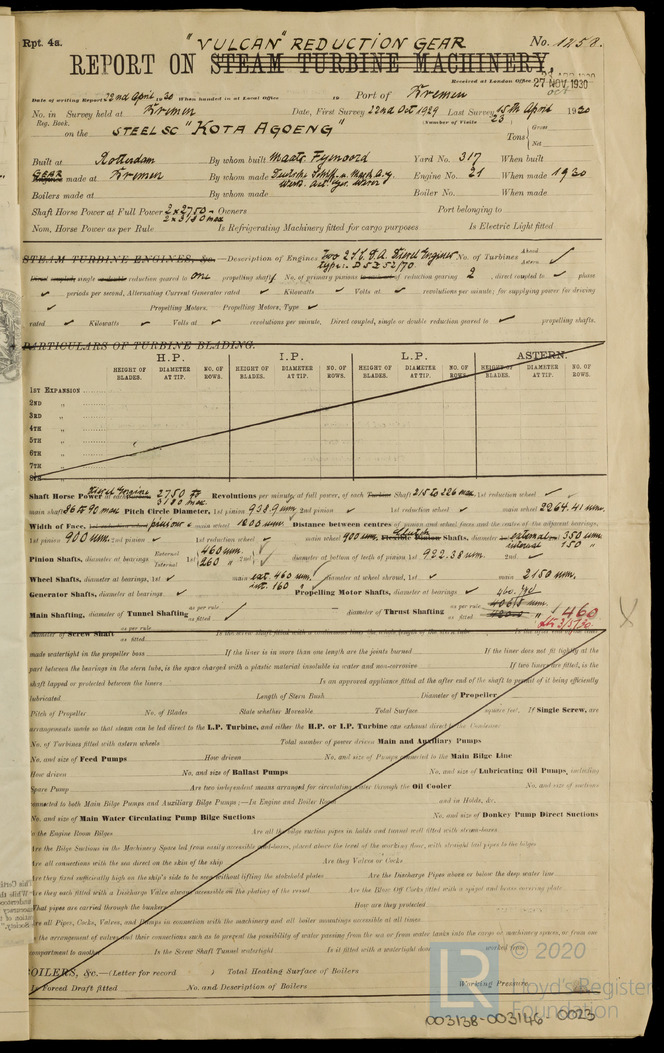 Rpt. 4a.
"VULCAN" REDUCTION GEAR
No. 1258.
REPORT ON STEAM TURBINE MACHINERY.
Received at London Office
27 NOV. 1930
Date of writing Report 22nd April 1930 When handed in at Local Office 19 Port of Bremen
No. in Survey held at Bremen Date, First Survey 22nd Oct 1929 Last Survey 15th April 1930
Reg. Book. (Number of Visits 23)
on the STEEL SC "KOTA AGOENG"
Tons { Gross
Net
Built at Rotterdam By whom built Maats. Fijenoord Yard No. 317 When built
GEAR Engines made at Bremen By whom made Engine No. 21 When made 1930
Boilers made at By whom made Boiler No. When made
Shaft Horse Power at Full Power 2 x 2750 - Owners Port belonging to
2 x 3180 max
Nom. Horse Power as per Rule Is Refrigerating Machinery fitted for cargo purposes Is Electric Light fitted
STEAM TURBINE ENGINES, &c.—Description of Engines Two No. of Turbines Ahead
Astern
single reduction geared to one propelling shaft. No. of primary pinions reduction gearing 2, direct coupled to phase
periods per second, Alternating Current Generator rated Kilowatts Volts at revolutions per minute; for supplying power for driving
Propelling Motors. Propelling Motors, Type
rated Kilowatts Volts at revolutions per minute. Direct coupled, single or double reduction geared to propelling shafts.
PARTICULARS OF TURBINE BLADING.
H.P. I.P. L.P. ASTERN.
HEIGHT OF BLADES. DIAMETER AT TIP. NO. OF ROWS. HEIGHT OF BLADES. DIAMETER AT TIP. NO. OF ROWS. HEIGHT OF BLADES. DIAMETER AT TIP. NO. OF ROWS. HEIGHT OF BLADES. DIAMETER AT TIP. NO. OF ROWS.
1ST EXPANSION
2ND „
3RD „
4TH „
5TH „
6TH „
7TH „
8TH „
Shaft Horse Power at each Diesel Engine 2750 Revolutions per minute, at full power, of each Turbine Shaft 215 to 226 max. 1st reduction wheel
3180 max
main shaft 86 to 90 max Pitch Circle Diameter, 1st pinion 938.9 mm 2nd pinion 1st reduction wheel main wheel 2264.41 mm
Width of Face, pinion main wheel 1200 mm. Distance between centres of pinion and wheel faces and the centre of the adjacent bearings,
1st pinion 900 mm. 2nd pinion 1st reduction wheel main wheel 900 mm. Clutch Shafts, diameter external 350 mm
internal 150 "
Pinion Shafts, diameter at bearings External 460 mm. diameter at bottom of teeth of pinion 1st 922.38 mm. 2nd
Internal 1st 260 " 2nd
Wheel Shafts, diameter at bearings, 1st main ext. 460 mm. diameter at wheel shroud, 1st main 2150 mm.
int. 160 "
Generator Shafts, diameter at bearings Propelling Motor Shafts, diameter at bearings
Main Shafting, diameter of Tunnel Shafting as per rule
as fitted — diameter of Thrust Shafting as per rule
as fitted 460
diameter of Screw Shaft as per rule
as fitted Is the screw shaft fitted with a continuous liner the whole length of the stern tube Is the after end of the liner
made watertight in the propeller boss If the liner is in more than one length are the joints burned If the liner does not fit tightly at the
part between the bearings in the stern tube, is the space charged with a plastic material insoluble in water and non-corrosive If two liners are fitted, is the
shaft lapped or protected between the liners Is an approved appliance fitted at the after end of the shaft to permit of it being efficiently
lubricated Length of Stern Bush Diameter of Propeller
Pitch of Propeller No. of Blades State whether Moveable Total Surface square feet. If Single Screw, are
arrangements made so that steam can be led direct to the L.P. Turbine, and either the H.P. or I.P. Turbine can exhaust direct to the Condenser
No. of Turbines fitted with astern wheels Total number of power driven Main and Auxiliary Pumps
No. and size of Feed Pumps How driven No. and size of Pumps connected to the Main Bilge Line
How driven No. and size of Ballast Pumps No. and size of Lubricating Oil Pumps, including
Spare Pump Are two independent means arranged for circulating water through the Oil Cooler No. and size of suctions
connected to both Main Bilge Pumps and Auxiliary Bilge Pumps;—In Engine and Boiler Room and in Holds, &c.
No. and size of Main Water Circulating Pump Bilge Suctions No. and size of Donkey Pump Direct Suctions
to the Engine Room Bilges Are all the bilge suction pipes in holds and tunnel well fitted with strum-boxes
Are the Bilge Suctions in the Machinery Space led from easily accessible mud-boxes, placed above the level of the working floor, with straight tail pipes to the bilges
Are all connections with the sea direct on the skin of the ship Are they Valves or Cocks
Are they fixed sufficiently high on the ship's side to be seen without lifting the stokehold plates Are the Discharge Pipes above or below the deep water line
Are they each fitted with a Discharge Valve always accessible on the plating of the vessel Are the Blow Off Cocks fitted with a spigot and brass covering plate
What pipes are carried through the bunkers How are they protected
Are all Pipes, Cocks, Valves, and Pumps in connection with the machinery and all boiler mountings accessible at all times
Is the arrangement of valves and their connections such as to prevent the possibility of water passing from the sea or from water tanks into the cargo or machinery spaces, or from one
compartment to another Is the Screw Shaft Tunnel watertight Is it fitted with a watertight door worked from
BOILERS, &c.—(Letter for record ) Total Heating Surface of Boilers
Is Forced Draft fitted No. and Description of Boilers Working Pressure
LR
© 2020
Lloyd's Register
Foundation
003138-003146-0023